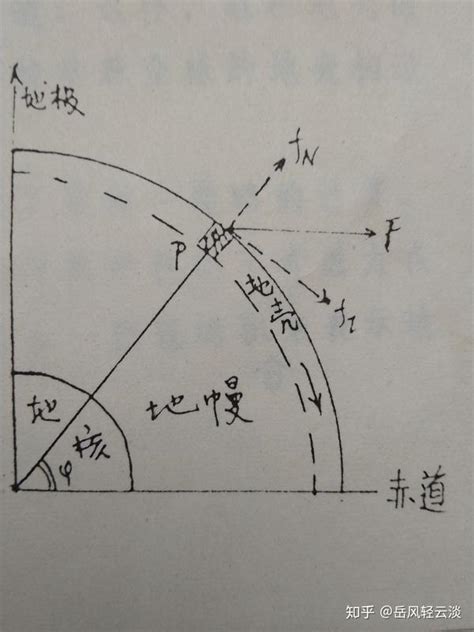 地极
fN
P
F
地壳
fI
地
核
地幔
φ
赤道
知乎 @岳风轻云淡